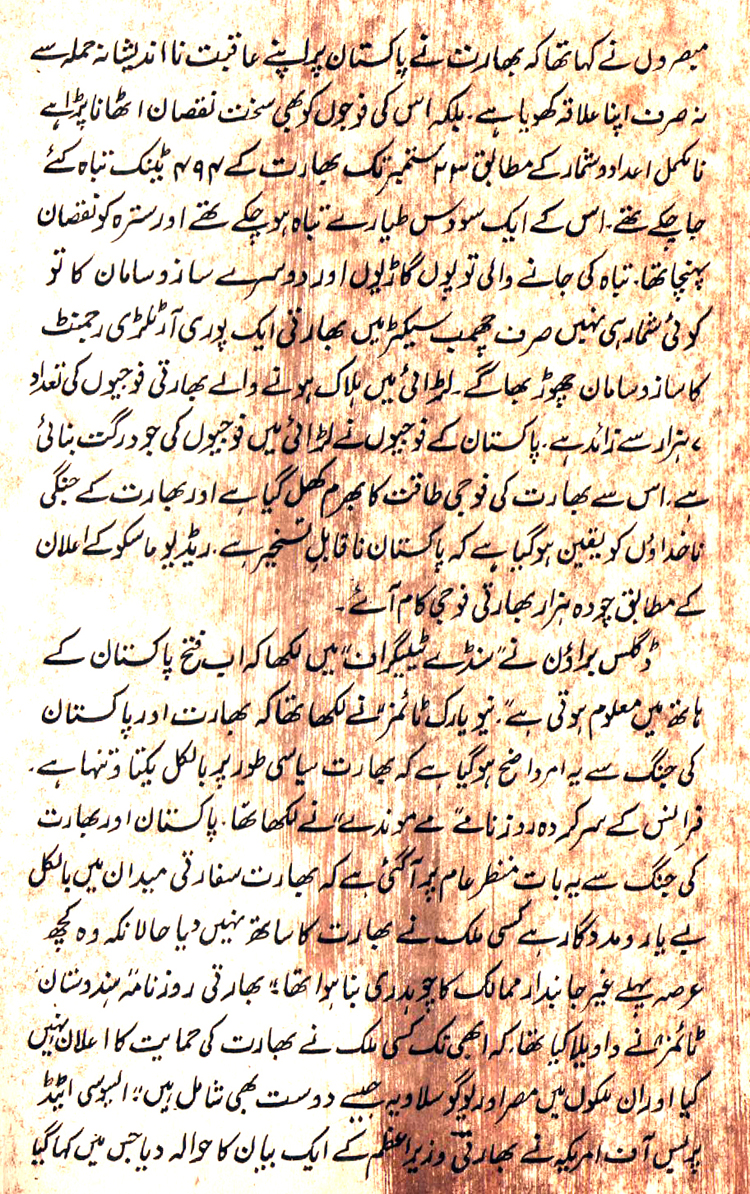 مبصروں نے کہا تھا کہ بھارت نے پاکستان پر اپنے عاقبت نا اندیشانہ حملہ سے
نہ صرف اپنا علاقہ کھویا ہے۔ بلکہ اس کی فوجوں کو بھی سخت نقصان اٹھانا پڑا ہے
نامکمل اعداد و شمار کے مطابق ۲۳ ستمبر تک بھارت کے ۴۹۴ ٹینک تباہ کئے
جا چکے تھے۔ اس کے ایک سو دس طیارے تباہ ہو چکے تھے اور سترہ کو نقصان
پہنچا تھا۔ تباہ کی جانے والی توپوں گاڑیوں اور دوسرے ساز و سامان کا تو
کوئی شمار ہی نہیں صرف چھمب سیکٹر میں بھارتی ایک پوری آرٹلری رجمنٹ
کا ساز و سامان چھوڑ بھاگے۔ لڑائی میں ہلاک ہونے والے بھارتی فوجیوں کی تعداد
۷ ہزار سے زائد ہے۔ پاکستان کے فوجیوں نے لڑائی میں فوجیوں کی جو درگت بنائی
ہے۔ اس سے بھارت کی فوجی طاقت کا بھرم کھل گیا ہے اور بھارت کے جنگی
ناخداؤں کو یقین ہو گیا ہے کہ پاکستان ناقابل تسخیر ہے۔ ریڈیو ماسکو کے اعلان
کے مطابق چودہ ہزار بھارتی فوجی کام آئے۔
ڈگلس براؤن نے "سنڈے ٹیلیگراف" میں لکھا کہ اب فتح پاکستان کے
ہاتھ میں معلوم ہوتی ہے"۔ نیویارک ٹائمز" نے لکھا تھا کہ بھارت اور پاکستان
کی جنگ سے یہ امر واضح ہو گیا ہے کہ بھارت سیاسی طور پر بالکل یکتا و تنہا ہے۔
فرانس کے سرکردہ روزنامے "لے موندے" نے لکھا تھا۔ پاکستان اور بھارت
کی جنگ سے یہ بات منظر عام پر آگئی ہے کہ بھارت سفارتی میدان میں بالکل
بے یار و مددگار ہے کسی ملک نے بھارت کا ساتھ نہیں دیا حالانکہ وہ کچھ
عرصہ پہلے غیر جانبدار ممالک کا چوہدری بنا ہوا تھا"۔ بھارتی روزنامہ "ہندوستان
ٹائمز" نے واویلا کیا تھا۔ کہ ابھی تک کسی ملک نے بھارت کی حمایت کا اعلان نہیں
کیا اور ان ملکوں میں مصر اور یوگوسلاویہ جیسے دوست بھی شامل ہیں"۔ ایسوسی ایٹڈ
پریس آف امریکہ نے بھارتی وزیر اعظم کے ایک بیان کا حوالہ دیا جس میں کہا گیا